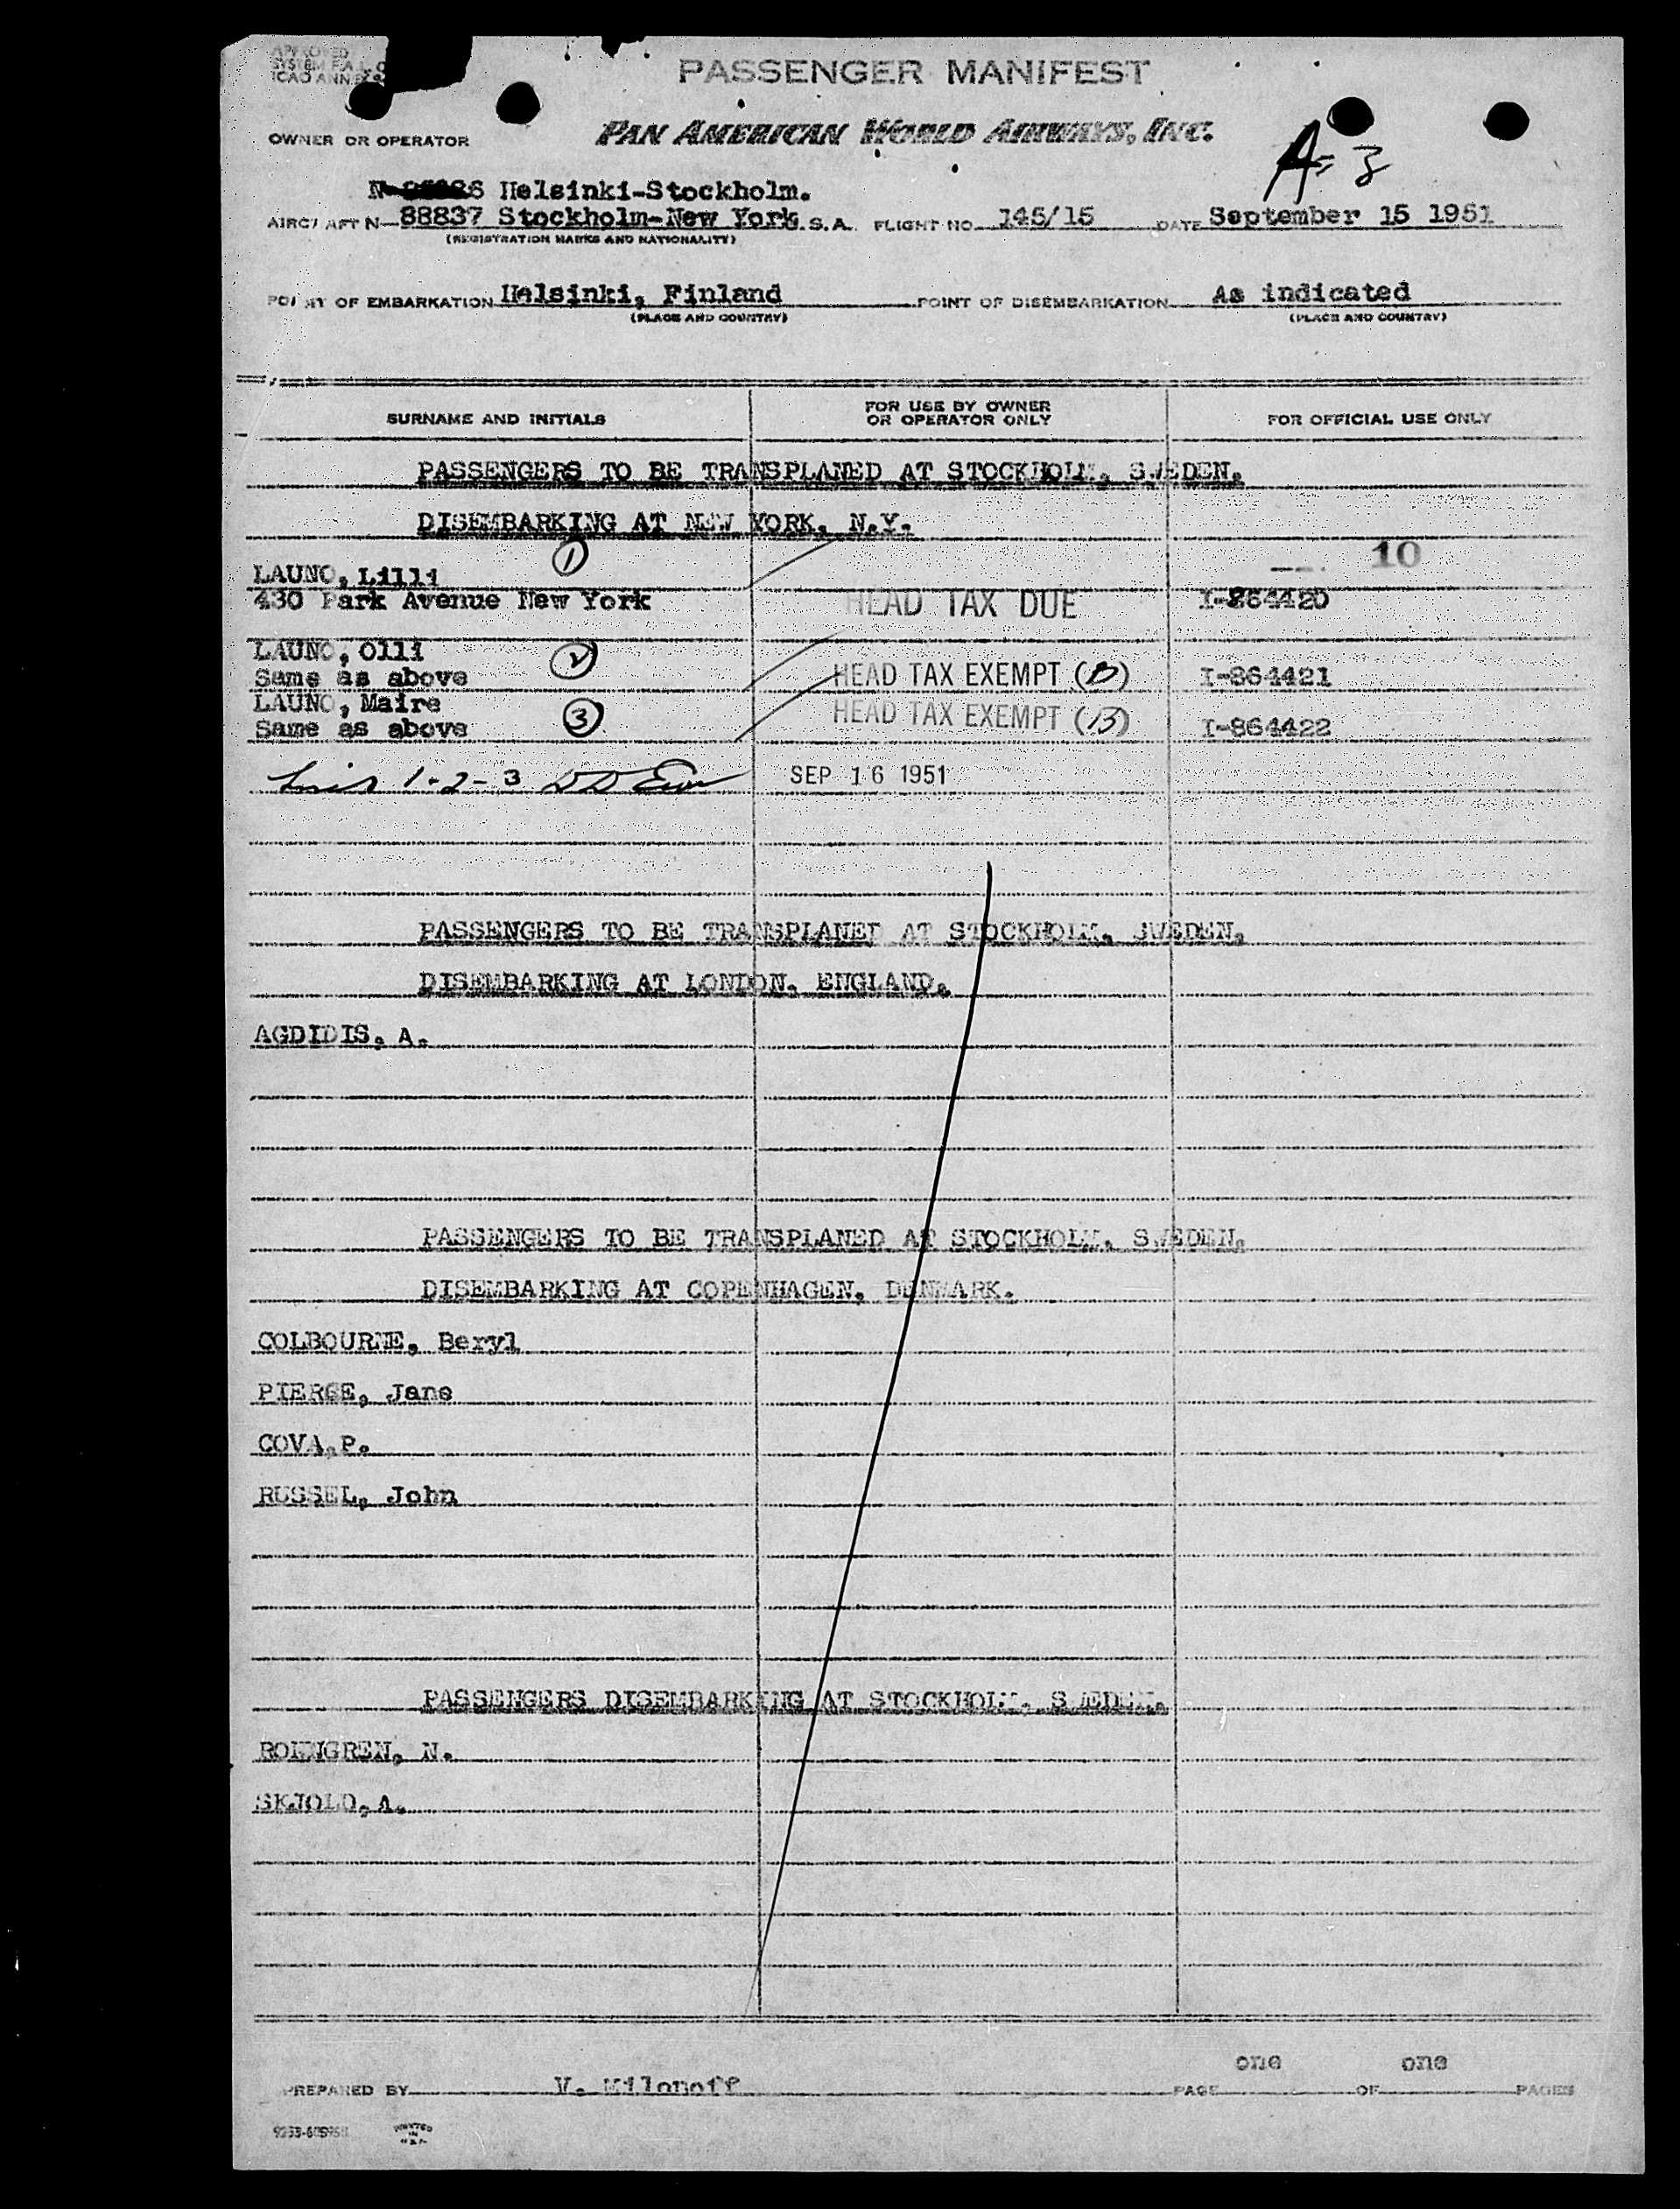 APPROVED
SYSTEM F.A.L.
ICAO ANNEX
PASSENGER MANIFEST
OWNER OR OPERATOR PAN AMERICAN WORLD AIRWAYS, INC.
A=3
Helsinki-Stockholm.
AIRCRAFT N-88837 Stockholm-New York U.S.A. FLIGHT NO. 145/15 DATE September 15 1951
(REGISTRATION MARKS AND NATIONALITY)
POINT OF EMBARKATION Helsinki, Finland POINT OF DISEMBARKATION As indicated
(PLACE AND COUNTRY) (PLACE AND COUNTRY)
SURNAME AND INITIALS FOR USE BY OWNER OR OPERATOR ONLY FOR OFFICIAL USE ONLY
PASSENGERS TO BE TRANSPLANED AT STOCKHOLM, SWEDEN.
DISEMBARKING AT NEW YORK, N.Y.
LAUNO, Lilli 1 10
430 Park Avenue New York HEAD TAX DUE I-864420
LAUNO, Olli 2
Same as above HEAD TAX EXEMPT (B) I-864421
LAUNO, Maire 3 HEAD TAX EXEMPT (B)
Same as above I-864422
1-2-3 SEP 16 1951
PASSENGERS TO BE TRANSPLANED AT STOCKHOLM, SWEDEN.
DISEMBARKING AT LONDON, ENGLAND.
AGDIDIS, A.
PASSENGERS TO BE TRANSPLANED AT STOCKHOLM, SWEDEN.
DISEMBARKING AT COPENHAGEN, DENMARK.
COLBOURNE, Beryl
PIERCE, Jane
COVA, P.
RUSSEL, John
PASSENGERS DISEMBARKING AT STOCKHOLM, SWEDEN.
N.
SKJOLD, A.
one one
PREPARED BY V. Milonoff PAGE OF PAGES
PRINTED
IN
U.S.A.